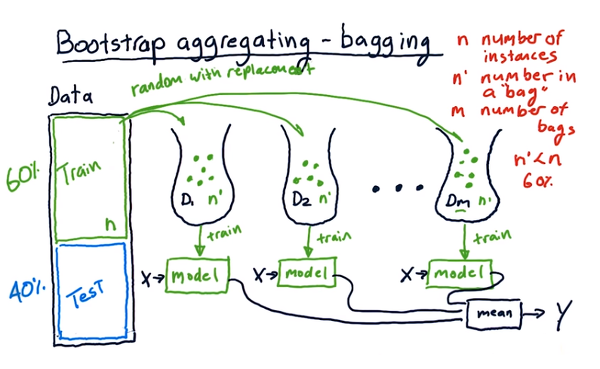 Bootstrap aggregating - bagging
n number of
instances
n' number in
a "bag"
m number of
bags
n'<n
60%
random with replacement
Data
60%
Train
n
40%
Test
D1 n'
D2 n'
...
Dm n'
train
train
train
X→ model
X→ model
X→ model
mean → Y